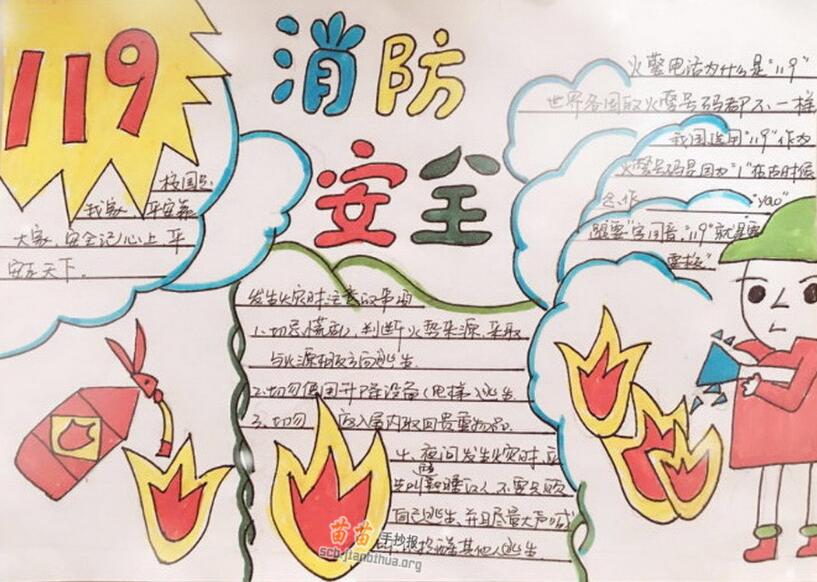 119
消防
安全
火警电话为什么是"119"
世界各国取火警号码都不一样
我国选用"119"作为
火警号码是因为"1"在古时候
念作"yao"
跟"要"字同音,"119"就是要
要救"
校园是
我家,平安靠
大家,安全记心上,平
安在天下.
发生火灾时注意的事项
1.切忌慌乱,判断火势来源,采取
与火源相反方向逃生
2.切勿使用升降设备(电梯)逃生
3.切勿返入屋内取回贵重物品.
4.夜间发生火灾时,应
先叫醒熟睡的人,不要只顾
自己逃生,并且尽量大声喊
其他人逃生.
苗苗手抄报
scb.jianbihua.org